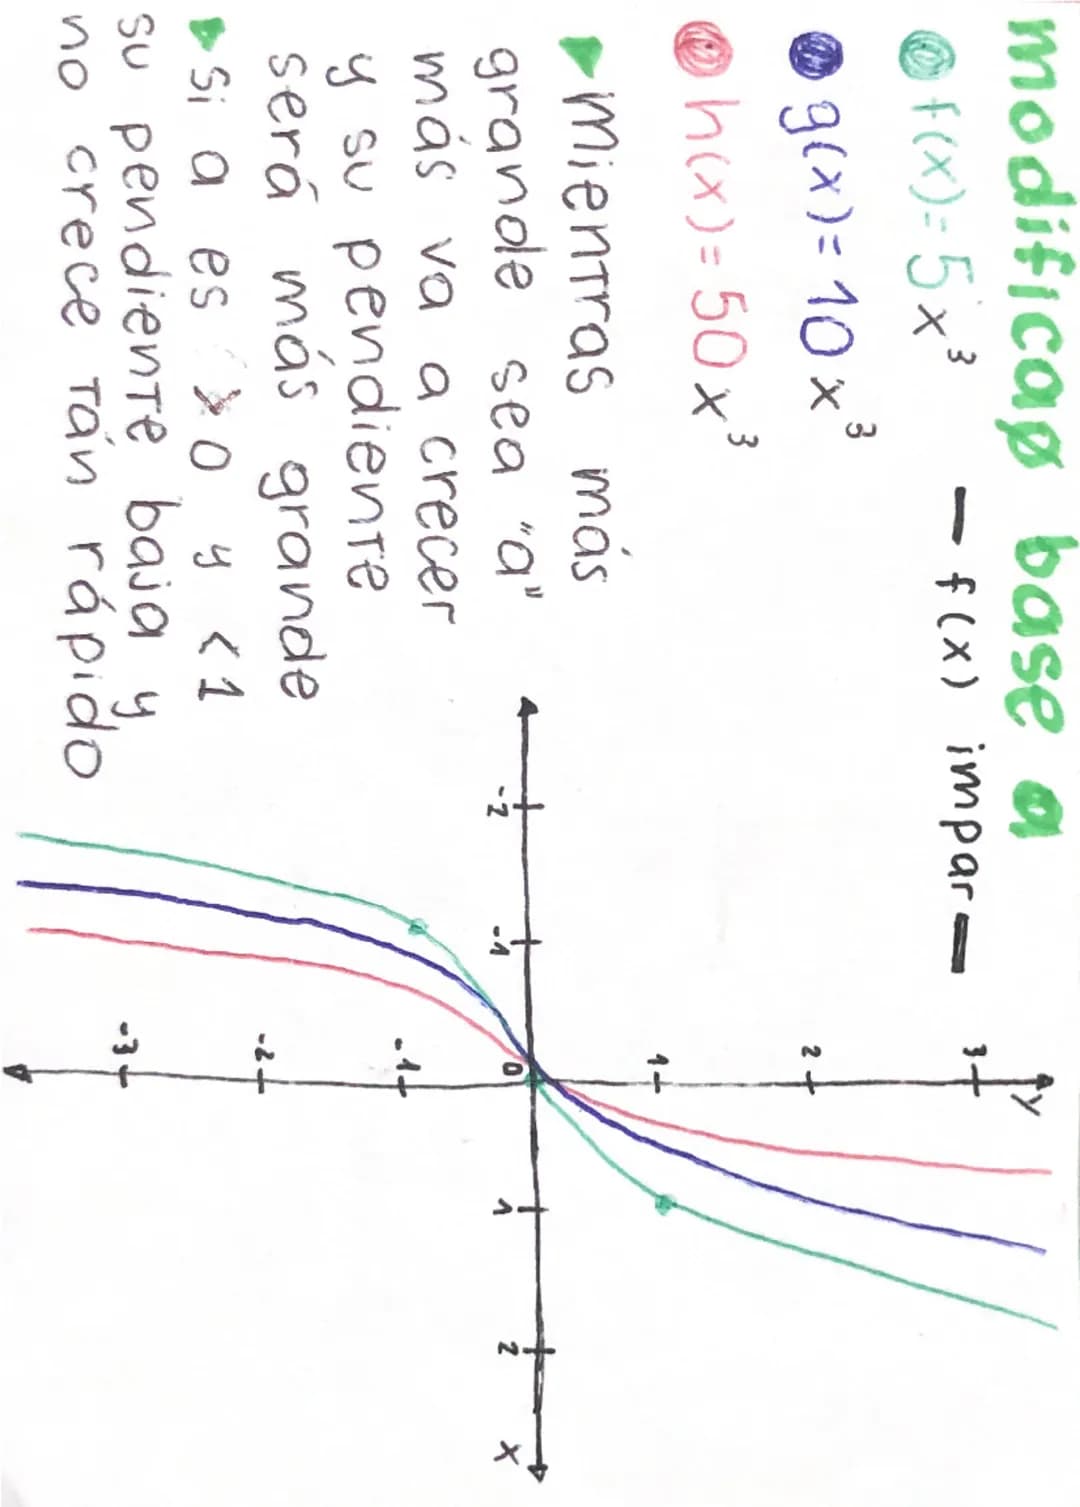 modificaø base a
f(x)= 5x³ — f(x) impar —
g(x)= 10x³
h(x)= 50x³
mientras más
grande sea "a"
más va a crecer
y su pendiente
será más grande
Si a es >0 y <1
su pendiente baja y
no crece tán rápido
-2 -1 0 1 2 x
y
3
2
1
-1
-2
-3